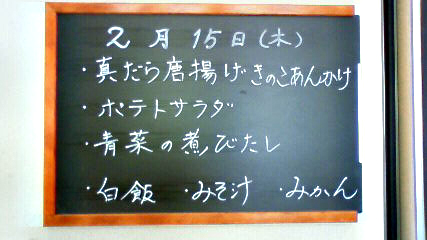 2月15日(木)
・真だら唐揚げきのこあんかけ
・ポテトサラダ
・青菜の煮びたし
・白飯 ・みそ汁 ・みかん